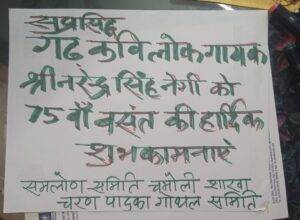 सुप्रसिद्ध
गढ़ कवि लोक गायक
श्री नरेन्द्र सिंह नेगी को
75 वाँ बसंत की हार्दिक
शुभकामनाएं
समलौण समिति चमोली शाखा
चरण पादुका गोथल समिति